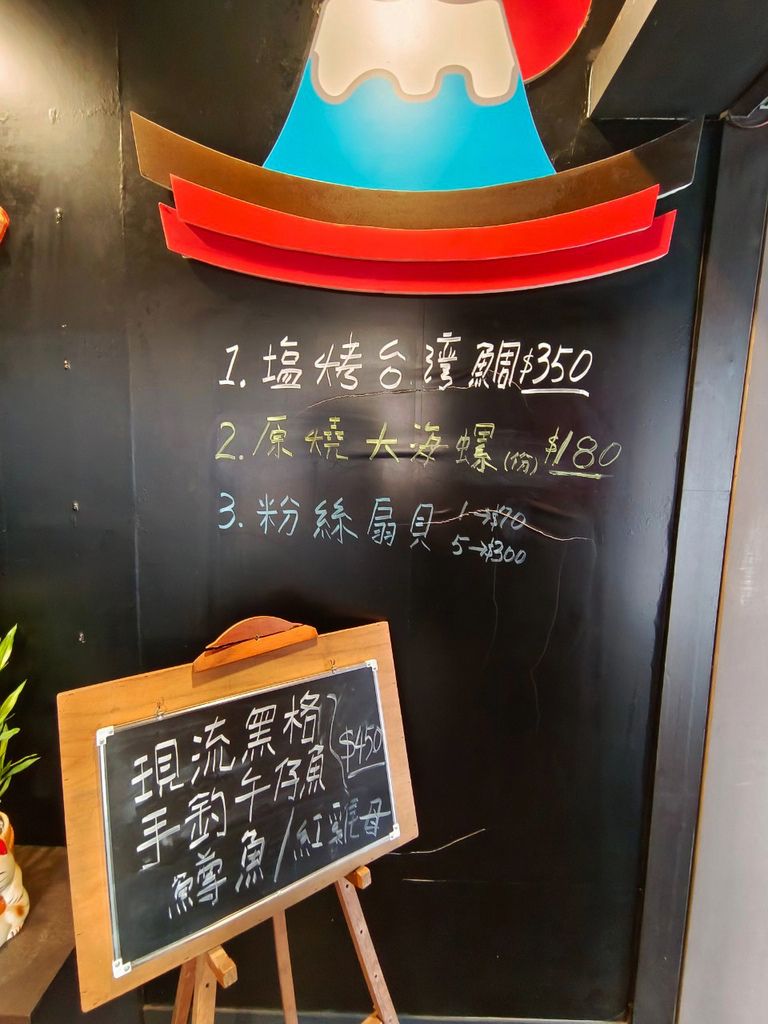 1. 塩烤台湾鯛$350
2. 原燒大海螺(份) $180
3. 粉絲扇貝 1→$70
5→$300
現流黑格
手釣午仔魚 $450
鱒魚/紅雞母